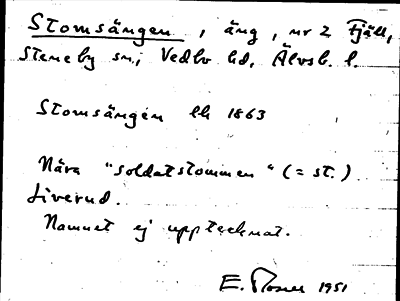 Stomsängen, äng, nr 2 Fjäll,
Steneby sn, Vedbo hd, Älvsb. l.
Stomsängen lh 1863
Nära "soldatstommen" (= st.)
Liverud.
Namnet ej upptecknat.
E. Rosner 1951